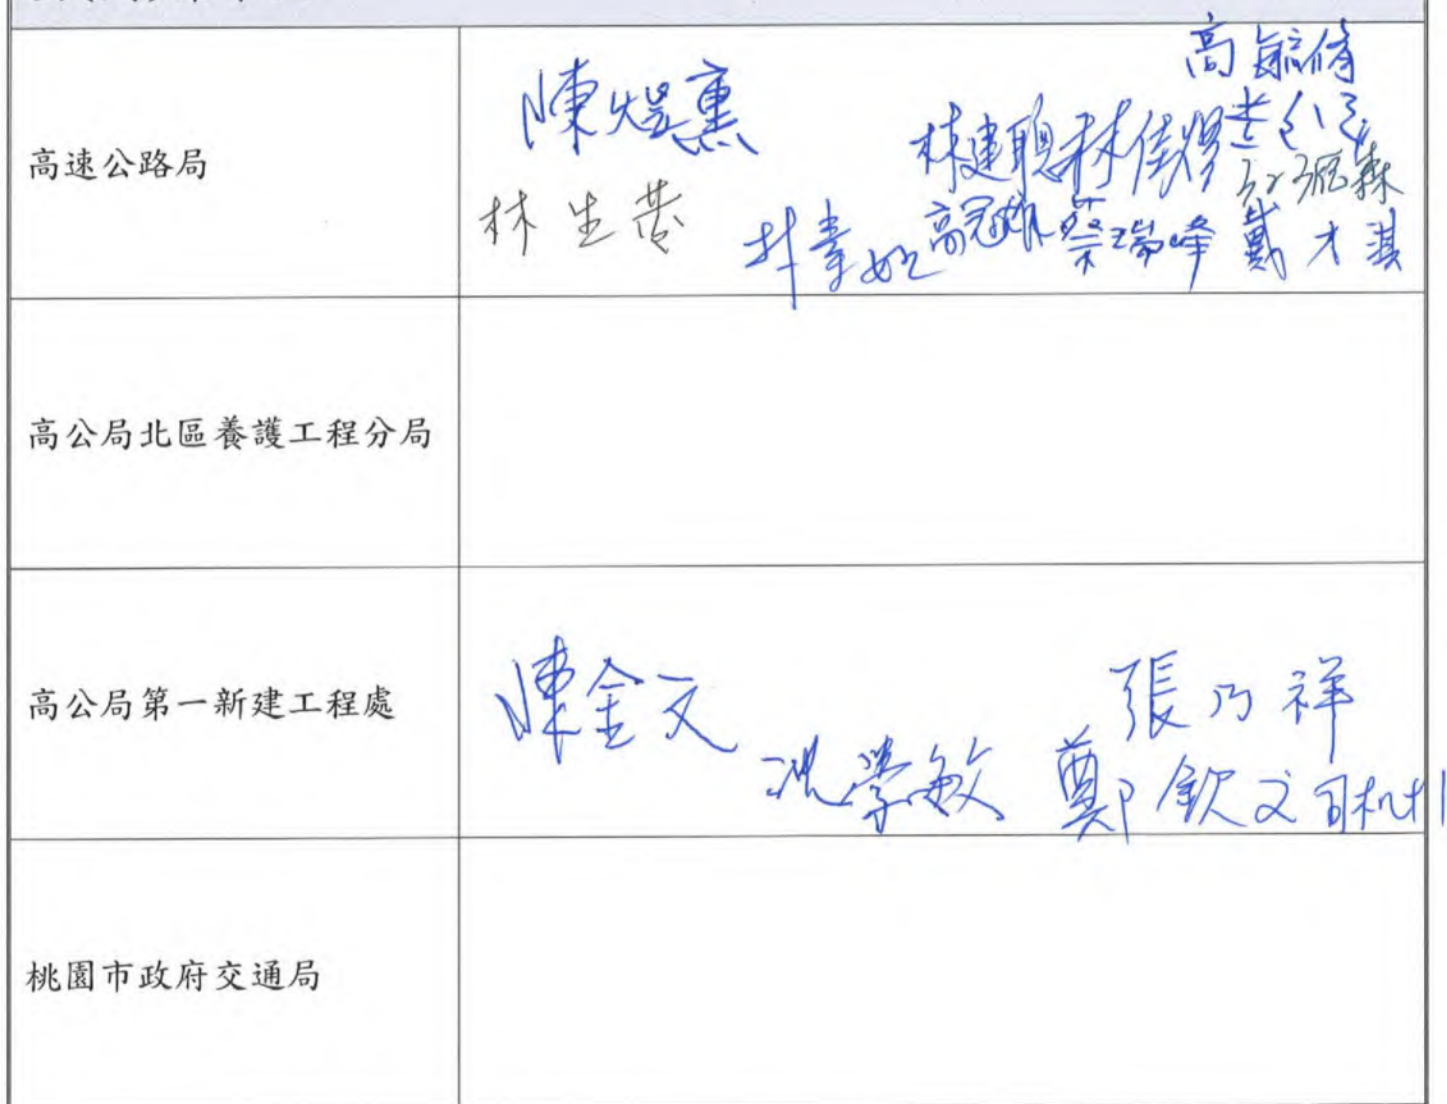 高速公路局
陳煜熏
高毓脩
林建聰
林佳燁
林生荗
高冠雄
蔡瑞峰
戴才淇
高公局北區養護工程分局
高公局第一新建工程處
陳金文
張乃祥
洪學敏
鄭欽文
桃園市政府交通局